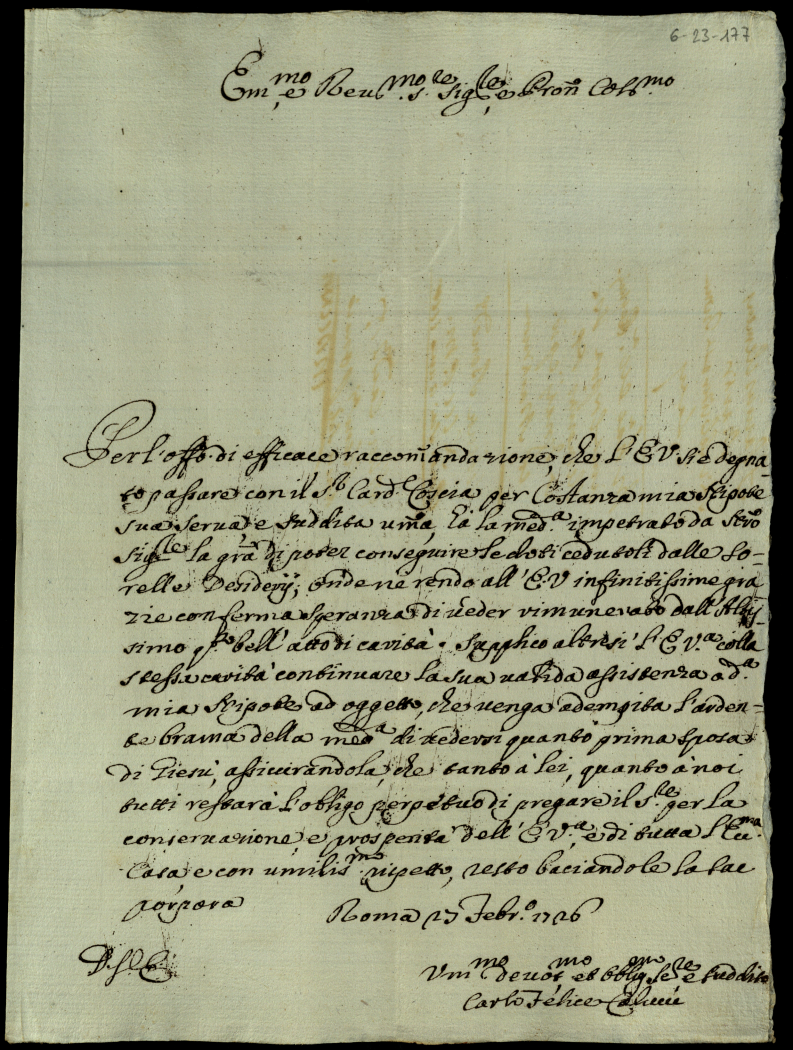 6-23-177
Em.mo e Reu.mo s. Sig.re e Pron Col.mo
Per l'offo. di efficace raccomandazione, che l'E V si è degna-
to passare con il S.r Card.l Coscia per Costanza mia Nipote
sua serua, e suddita uma, hà la med.a impetrato da Nro
Sig.re la gra di poter conseguire le doti cedutoli dalle So-
relle Desiderij, onde ne rendo all'E.V infinitissime gra
zie con ferma speranza di ueder rimunerato dall'Altis-
simo q.to bell'atto di carità. Supplico altresi l'E V.a colla
stessa carità continuare la sua ualida assistenza a d.a
mia Nipote ad oggetto, che uenga adempita l'arden-
te brama della med.a di uedersi quanto prima sposa
di Giesù, assicurandola, che tanto à lei, quanto à noi
tutti restarà l'obligo perpetuo di pregare il S.re per la
conseruazione, e prosperità dell'E V.a, e di tutta l'Ecc.ma
Casa e con umilis.mo rispetto, resto baciandole la sac
porpora
Roma 27 Febr.o 1726
D. S.E.
Um.mo deuot.mo et oblig.mo se.re e suddito
Carlo Felice